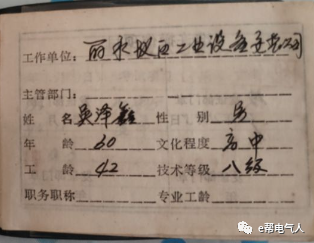 工作单位: 丽水地区工业设备安装公司
主管部门:
姓 名 吴泽鑫 性 别 男
年 龄 60 文化程度 高中
工 龄 42 技术等级 八级
职务职称 专业工龄
e帮电气人